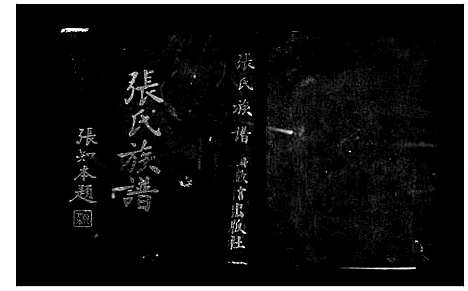 張氏族譜
張知本題
張氏族譜
出版社